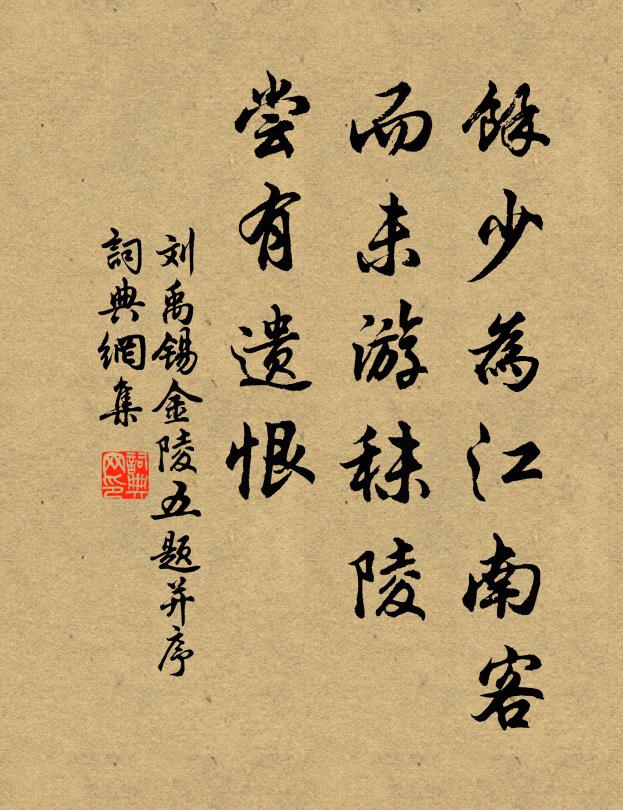 餘少為江南客
而未游秣陵
尝有遗恨
刘禹锡金陵五题并序
詞典網集
詞典网印